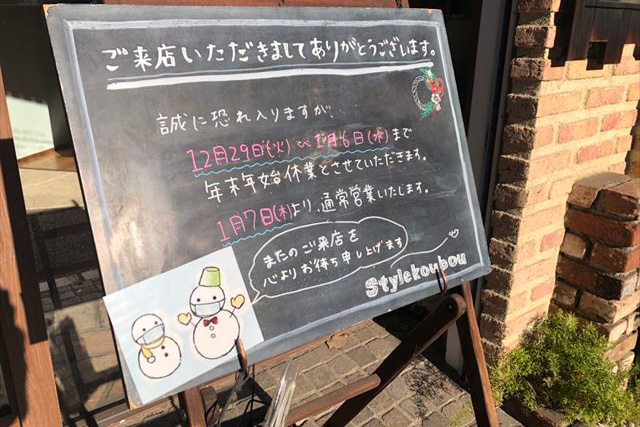 ご来店いただきましてありがとうございます。
誠に恐れ入りますが、
12月29日(火)〜1月6日(水)まで
年末年始休業とさせていただきます。
1月7日(木)より、通常営業いたします。
またのご来店を
心よりお待ち申し上げます
Stylekoubou